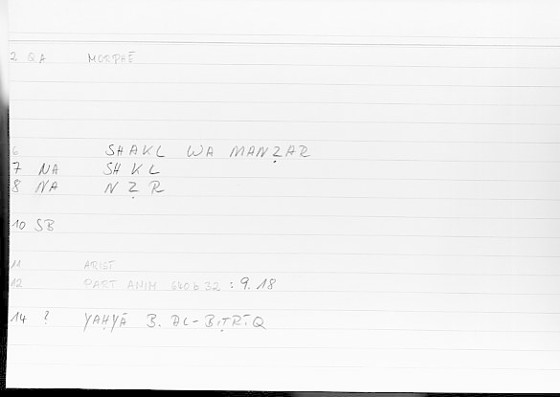 2 QA MORPHĒ
6 SHAKL WA MANẒAR
7 NA SHKL
8 NA NẒR
10 SB
11 ARIST
12 PART ANIM 640b32 : 9.18
14 ? YAḤYĀ B. AL-BIṬRĪQ